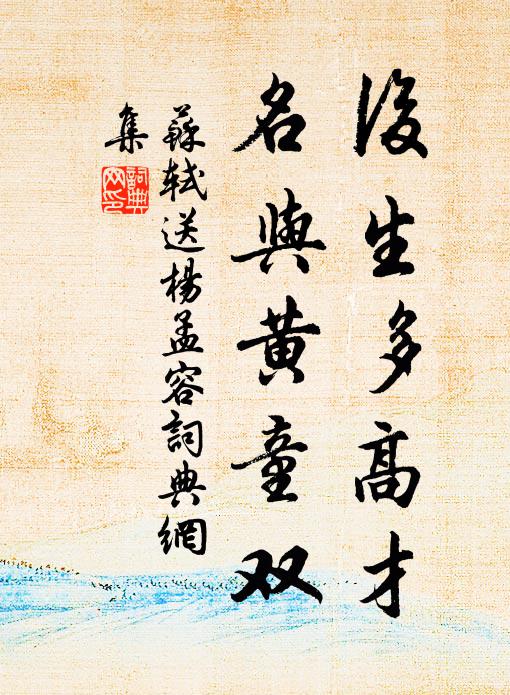 後生多高才
名與黃童双
蘇軾送楊孟容詞典網
集
詞典
网印